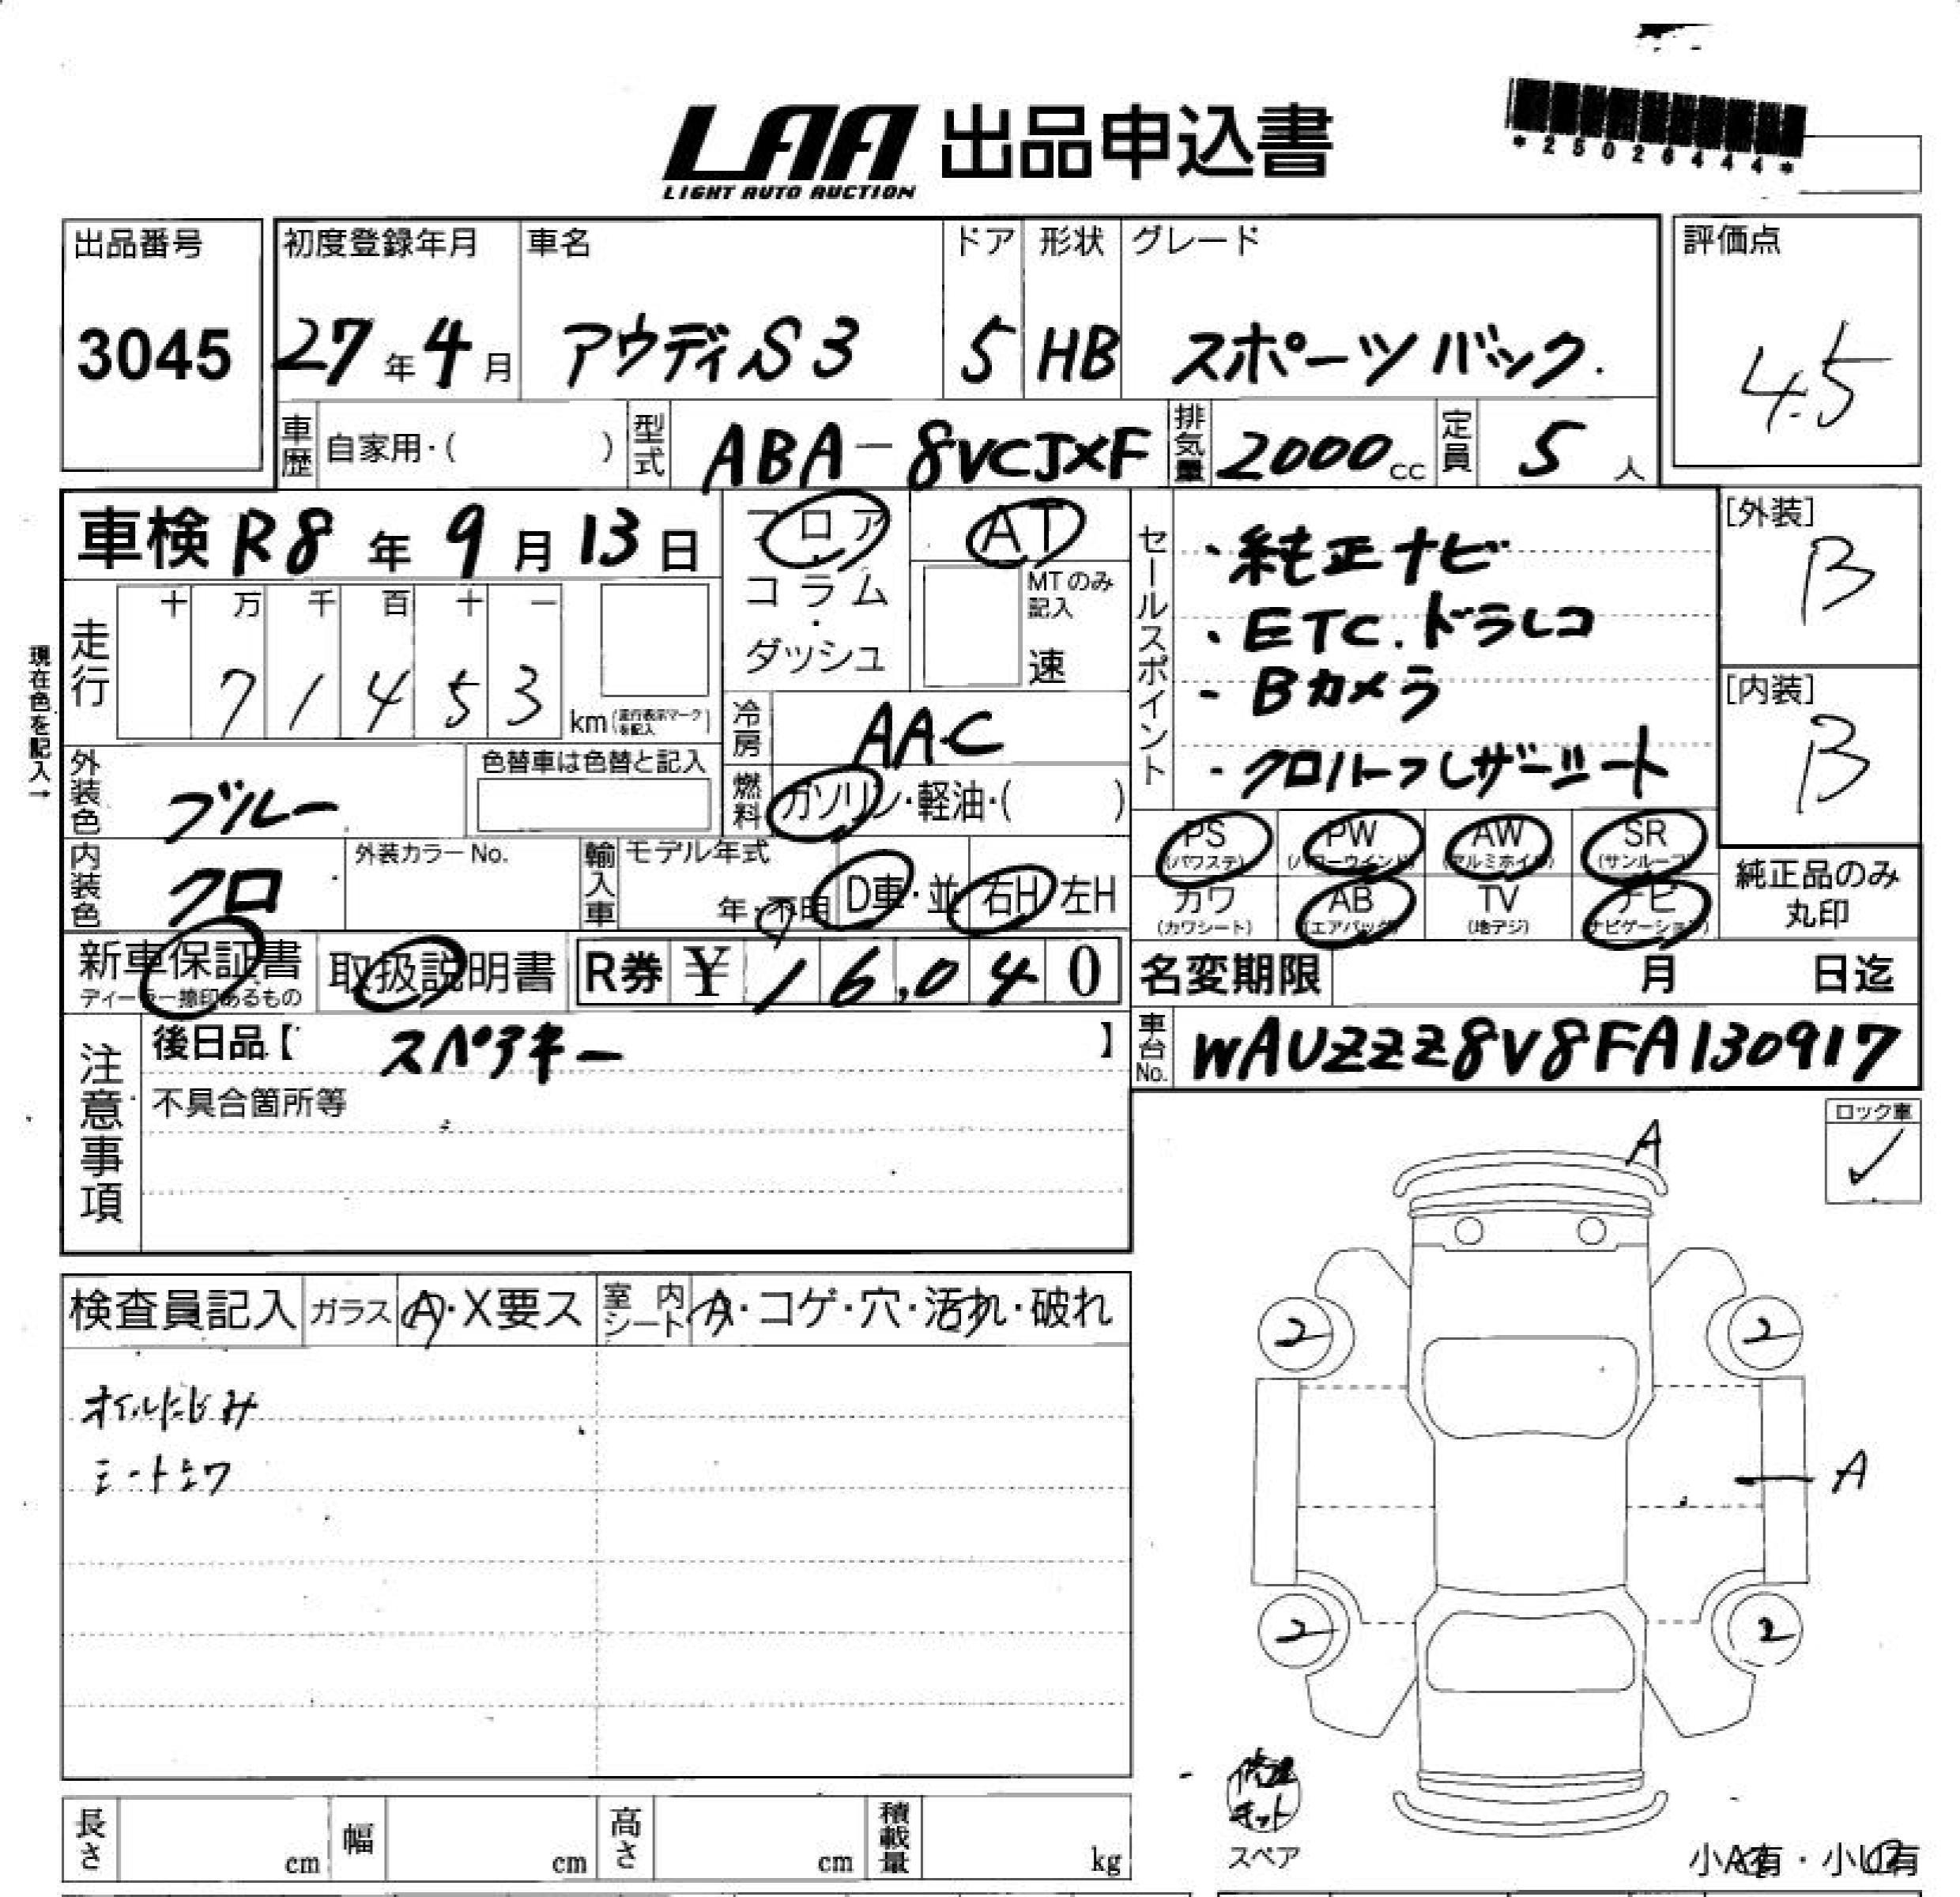 LAA 出品申込書
LIGHT AUTO AUCTION
*25026444*
出品番号
3045
初度登録年月
27年4月
車名
アウディS3
ドア
5
形状
HB
グレード
スポーツバック.
評価点
4.5
車歴
自家用・( )
型式
ABA-8VCJXF
排気量
2000cc
定員
5人
車検 R8年9月13日
フロア・コラム・ダッシュ
AT
MTのみ記入
速
現在色を記入→
走行
十 万 千 百 十 一
7 1 4 5 3
km(走行表示マークを記入)
冷房
AAC
燃料
ガソリン・軽油・( )
外装色
ブルー
色替車は色替と記入
内装色
クロ
外装カラーNo.
輸入車
モデル年式
年・不明
D車・並
右H・左H
セールスポイント
・純正ナビ
・ETC.ドラレコ
- Bカメラ
- クロハーフレザーシート
[外装]
B
[内装]
B
PS
(パワステ)
PW
(パワーウインド)
AW
(アルミホイル)
SR
(サンルーフ)
カワ
(カワシート)
AB
(エアバッグ)
TV
(地デジ)
ナビ
(ナビゲーション)
純正品のみ
丸印
新車保証書
ディーラー捺印あるもの
取扱説明書
R券 ¥ 16,040
名変期限 月 日迄
車台No.
WAUZZZ8V8FA130917
注意事項
後日品【 スペアキー 】
不具合箇所等
ロック車
✓
検査員記入
ガラス
A・X要ス
室内シート
A・コゲ・穴・汚れ・破れ
オイルにじみ
シートシワ
A
2
2
A
2
2
修理キット
スペア
小A有・小U有
長さ cm
幅 cm
高さ cm
積載量 kg